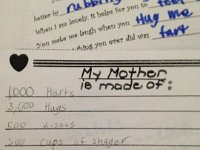 better by rubbing feet
When I am lonely. It helps for you to Hug me
You make me laugh when you
thing you ever did was fart
My Mother
is made of:
1,000 Harts
3,000 Hags
500 kisses
300 cups of shager